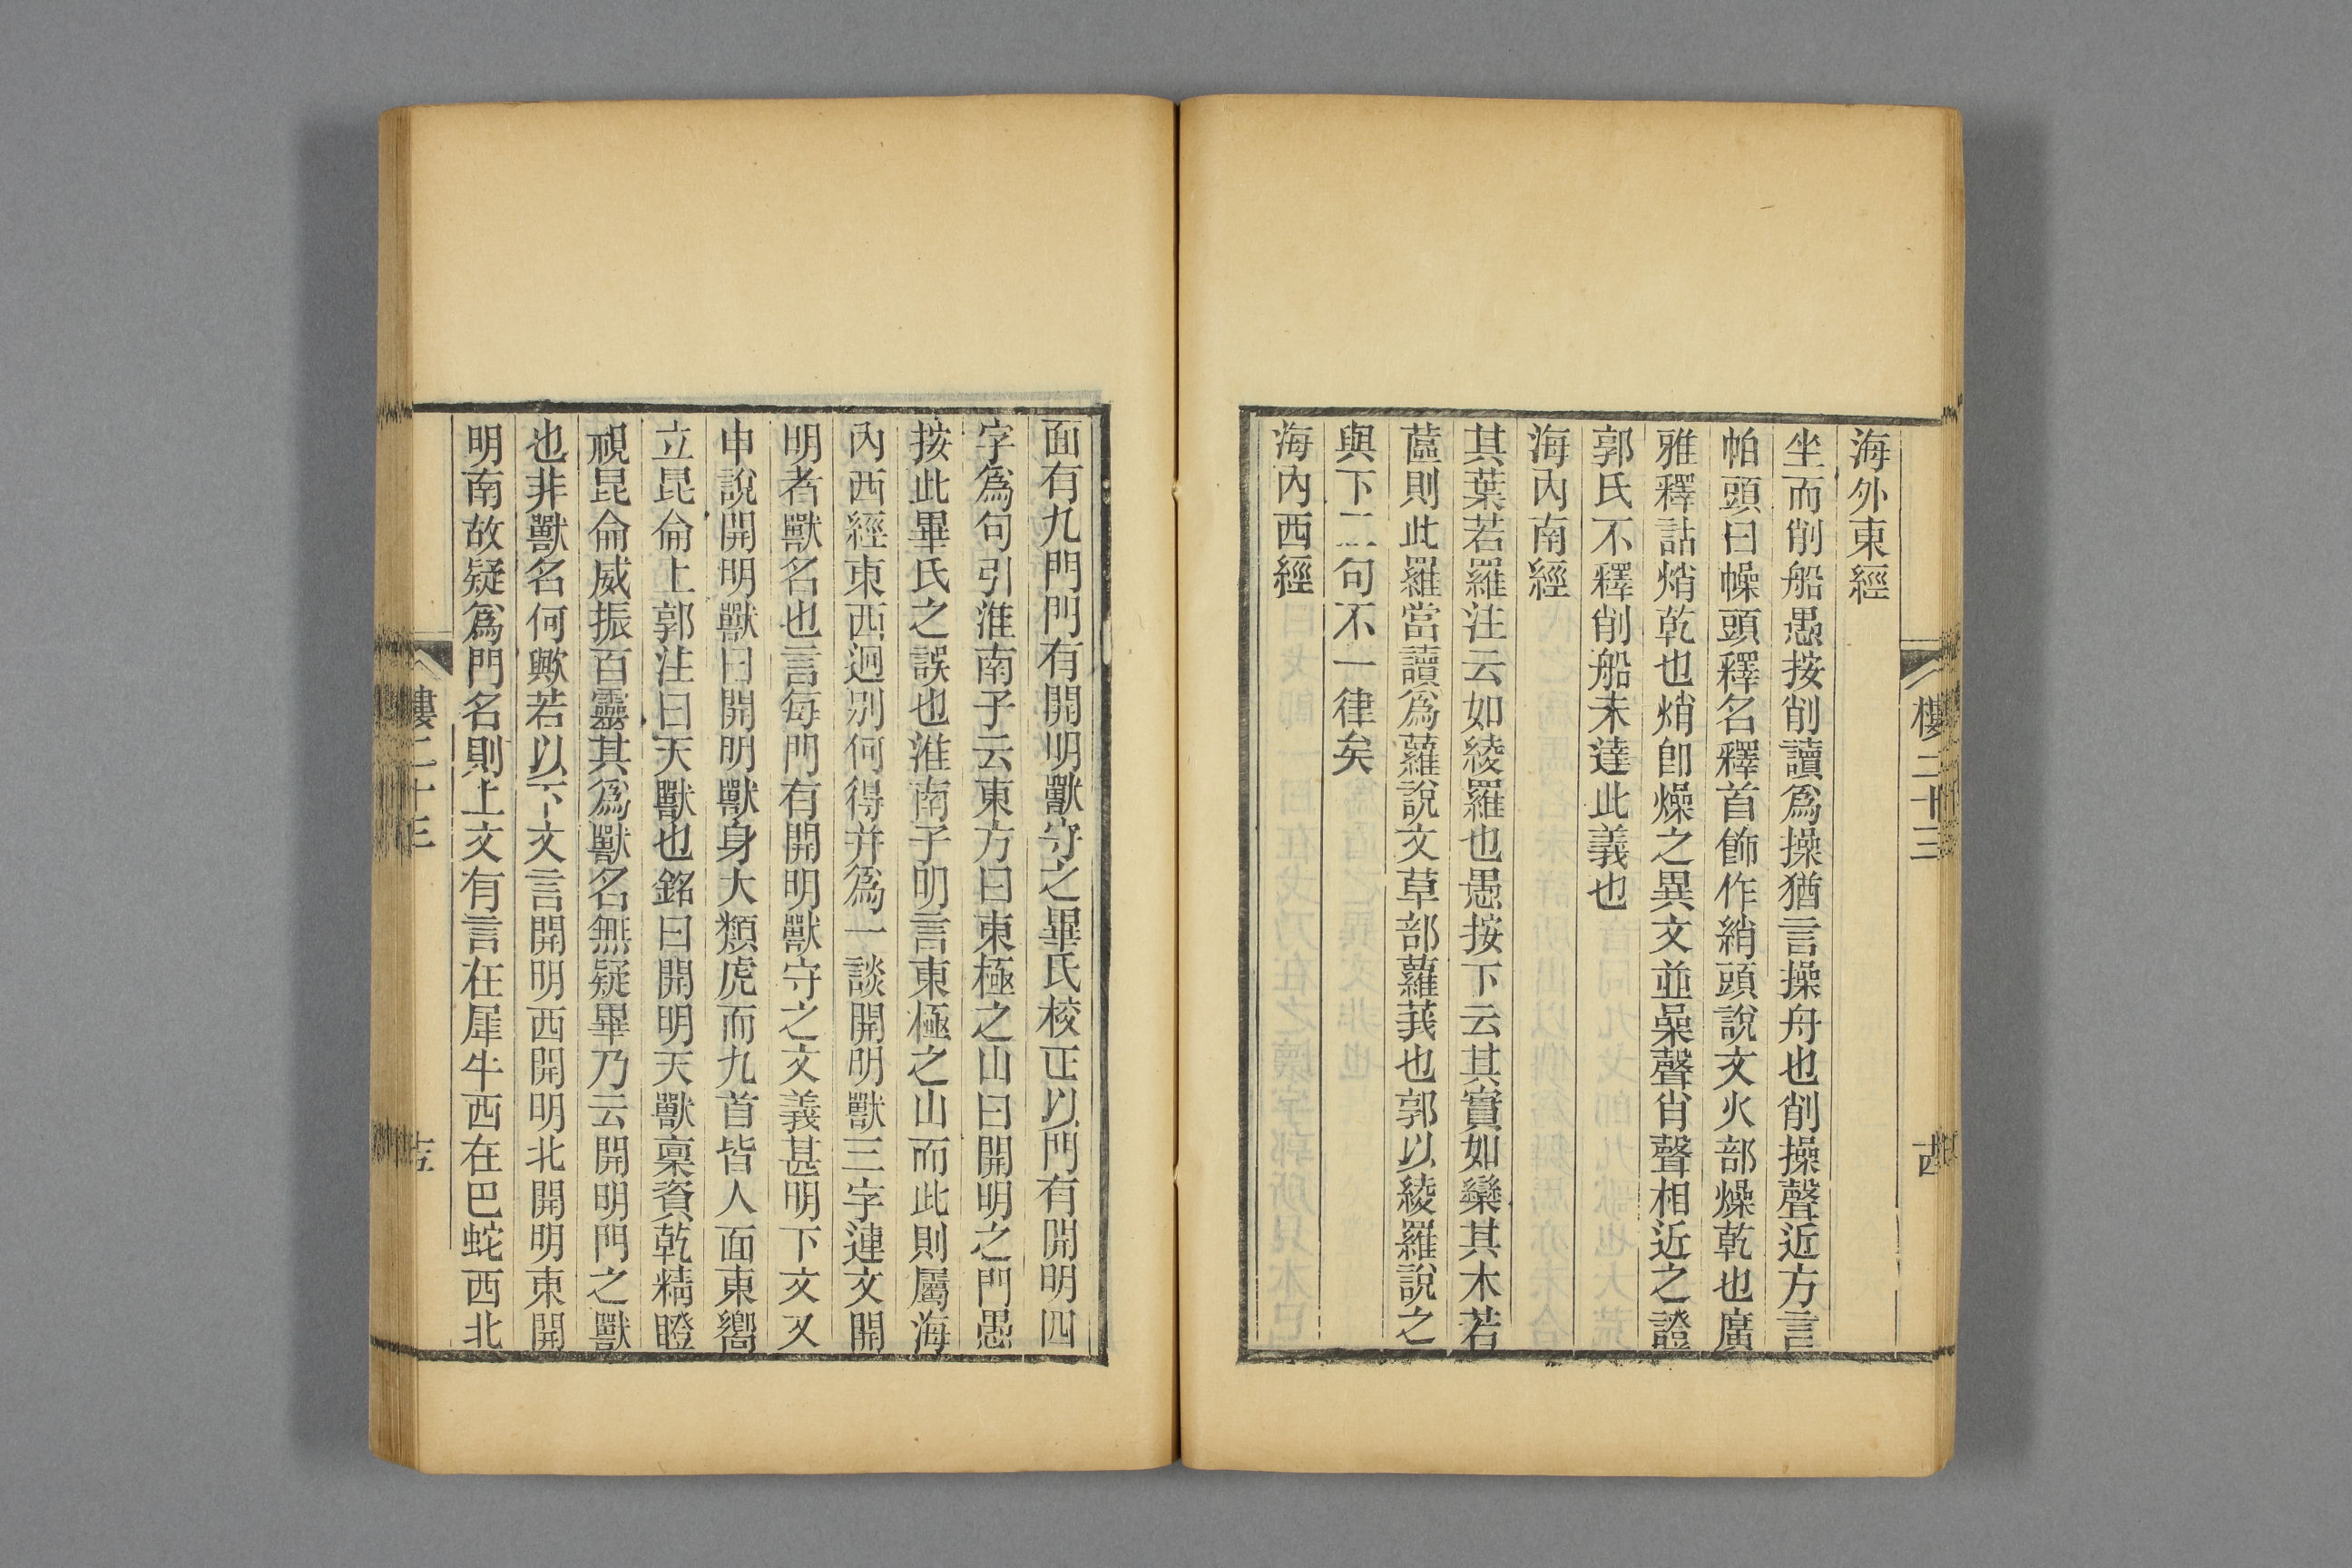 海外東經
坐而削船愚按削讀爲操猶言操舟也削操聲近方言
帕頭曰幧頭釋名釋首飾作綃頭說文火部燥乾也廣
雅釋詁焇乾也焇卽燥之異文並喿聲肖聲相近之證
郭氏不釋削船未達此義也
海內南經
其葉若羅注云如綾羅也愚按下云其實如欒其木若
蓲則此羅當讀爲蘿說文草部蘿莪也郭以綾羅說之
與下二句不一律矣
海內西經
樓二十三
面有九門門有開明獸守之畢氏校正以門有開明四
字爲句引淮南子云東方曰東極之山曰開明之門愚
按此畢氏之誤也淮南子明言東極之山而此則屬海
內西經東西迥別何得并爲一談開明獸三字連文開
明者獸名也言每門有開明獸守之文義甚明下文又
申說開明獸曰開明獸身大類虎而九首皆人面東嚮
立昆侖上郭注曰天獸也銘曰開明天獸稟資乾精瞪
視昆侖威振百靈其爲獸名無疑畢乃云開明門之獸
也非獸名何歟若以下文言開明西開明北開明東開
明南故疑爲門名則上文有言在犀牛西在巴蛇西北
樓二十三